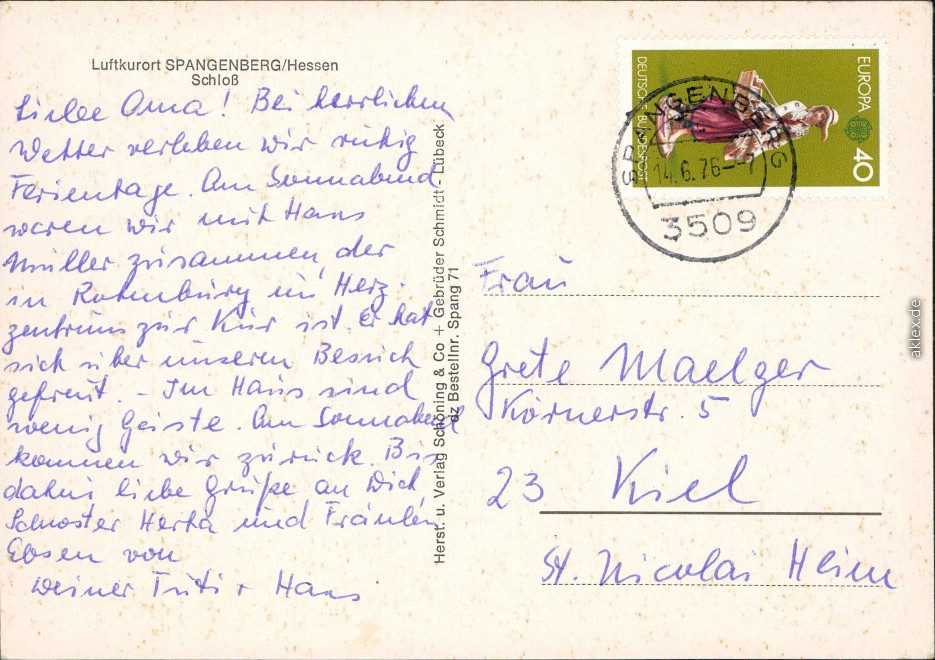 Luftkurort SPANGENBERG/Hessen
Schloß
Liebe Oma! Bei herrlichem
Wetter verleben wir ruhig
Ferientage. Am Sonnabend
waren wir mit Hans
Müller zusammen, der
in Rotenburg im Herz-
zentrum zur Kur ist. Er hat
sich über unseren Besuch
gefreut. - Im Haus sind
wenig Gäste. Am Sonnabend
kommen wir zurück. Bis
dahin liebe Grüße an Dich,
Schwester Herta und Fräulein
Ebsen von
Deiner Tuti + Hans
Herst. u. Verlag Schöning & Co + Gebrüder Schmidt - Lübeck
dz Bestellnr. Spang 71
DEUTSCHE BUNDESPOST
EUROPA
40
SPANGENBERG
14.6.76--7
3509
Frau
Grete Maelger
Körnerstr. 5
23 Kiel
St. Nicolai Heim
aklex.de